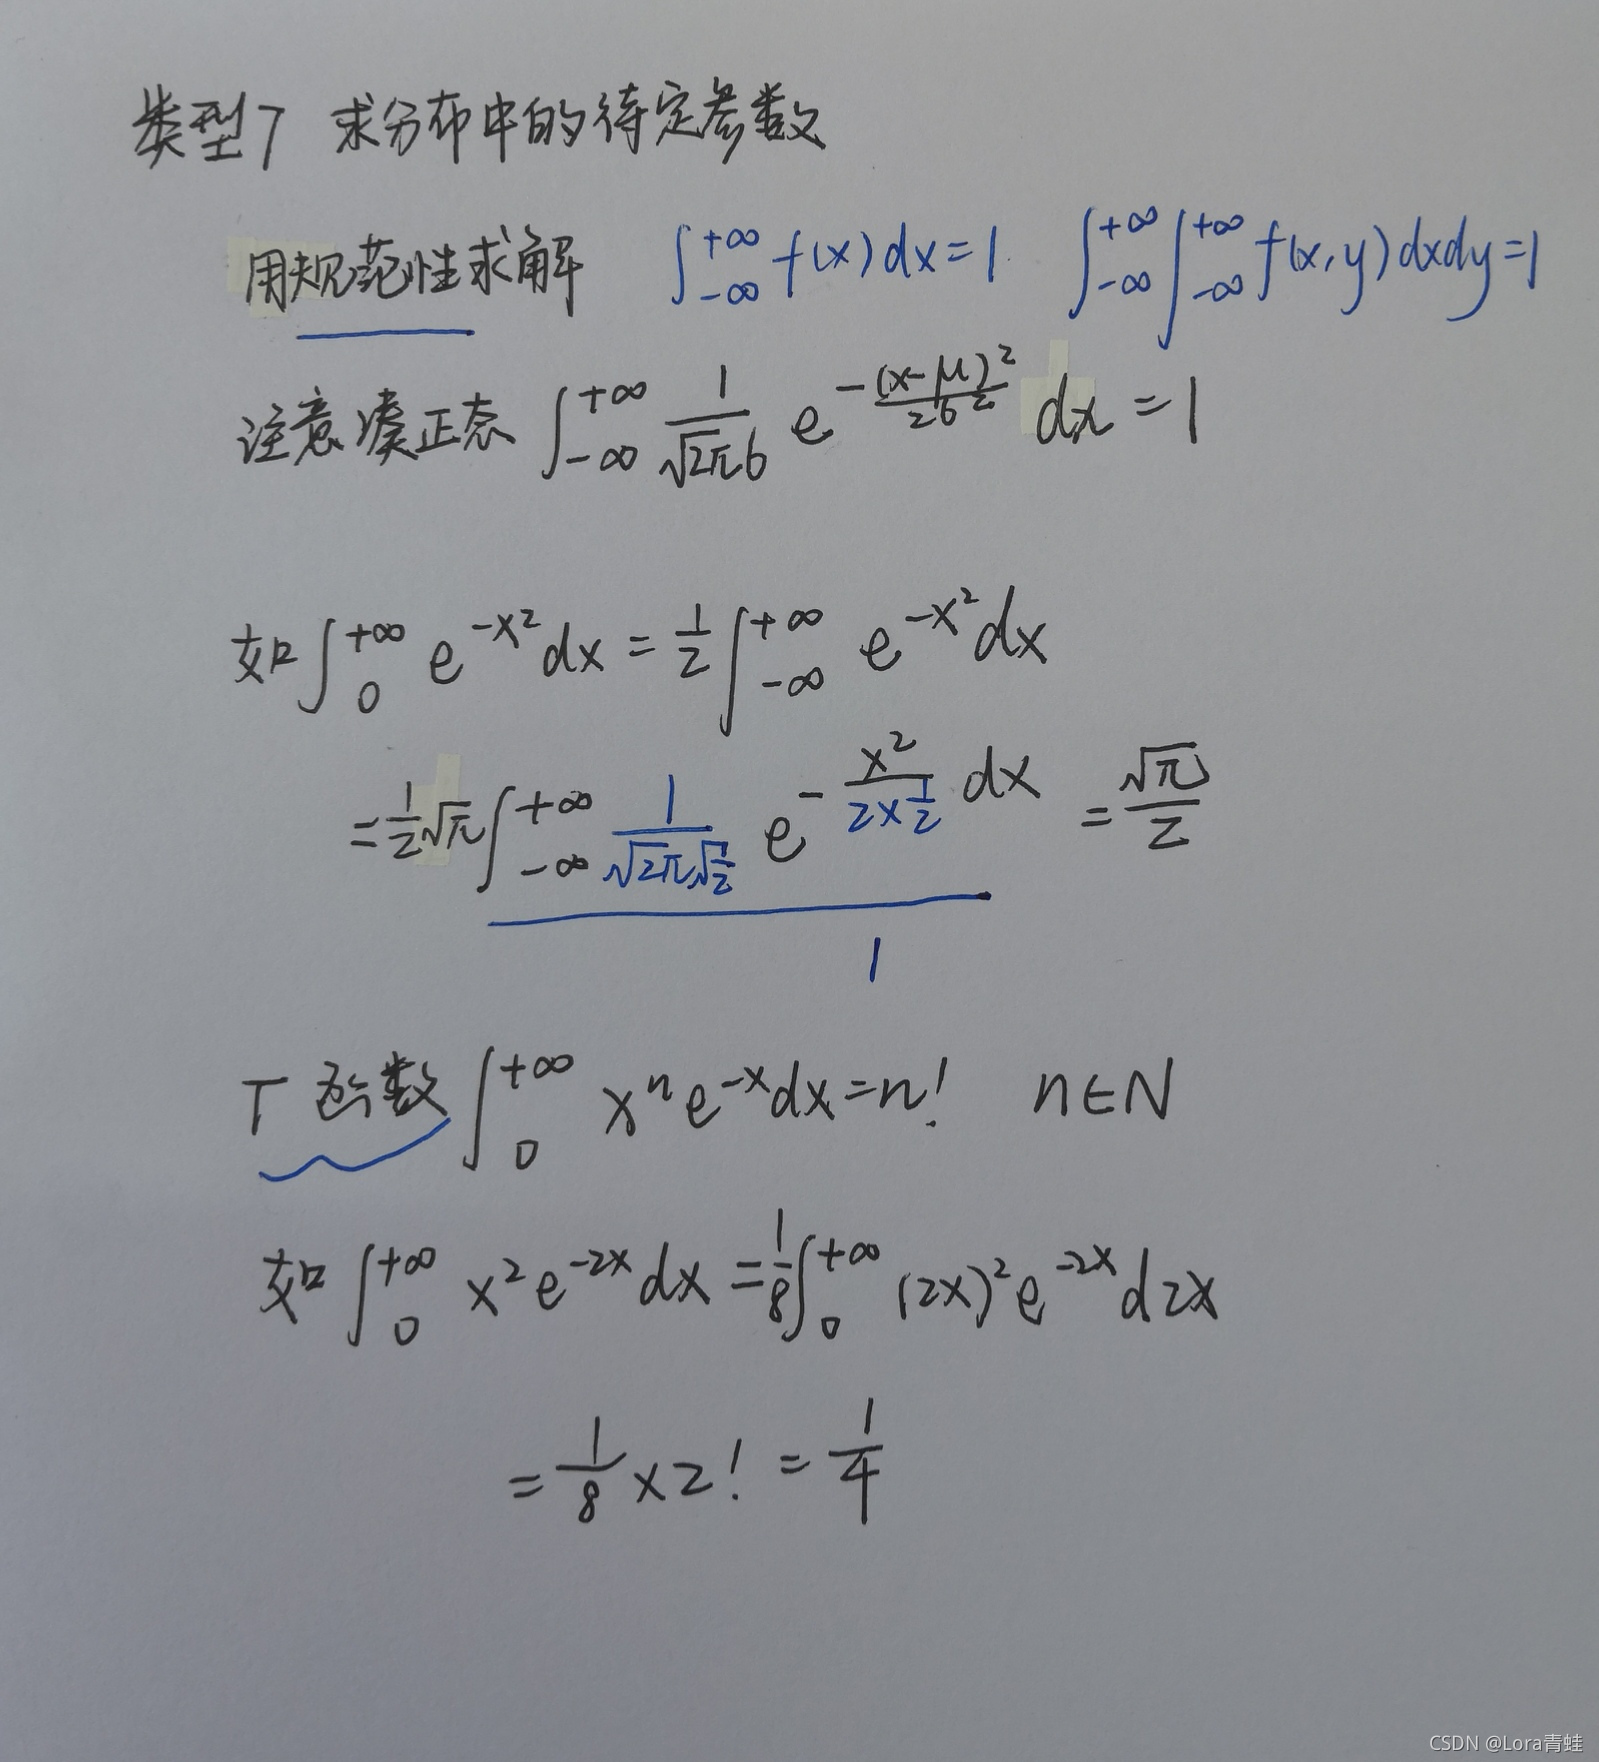 类型7 求分布中的待定参数
用规范性求解 ∫_{-∞}^{+∞} f(x)dx=1 ∫_{-∞}^{+∞}∫_{-∞}^{+∞} f(x,y)dxdy=1
注意凑正态 ∫_{-∞}^{+∞} \frac{1}{\sqrt{2π}σ} e^{-\frac{(x-μ)^2}{2σ^2}} dx=1
如 ∫_0^{+∞} e^{-x^2}dx = \frac{1}{2}∫_{-∞}^{+∞} e^{-x^2}dx
=\frac{1}{2}\sqrt{π}∫_{-∞}^{+∞} \frac{1}{\sqrt{2π}\sqrt{\frac{1}{2}}} e^{-\frac{x^2}{2×\frac{1}{2}}} dx = \frac{\sqrt{π}}{2}
1
Γ函数 ∫_0^{+∞} x^n e^{-x}dx=n! n∈N
如 ∫_0^{+∞} x^2 e^{-2x} dx =\frac{1}{8}∫_0^{+∞} (2x)^2 e^{-2x} d2x
= \frac{1}{8}×2! = \frac{1}{4}
CSDN @Lora青蛙